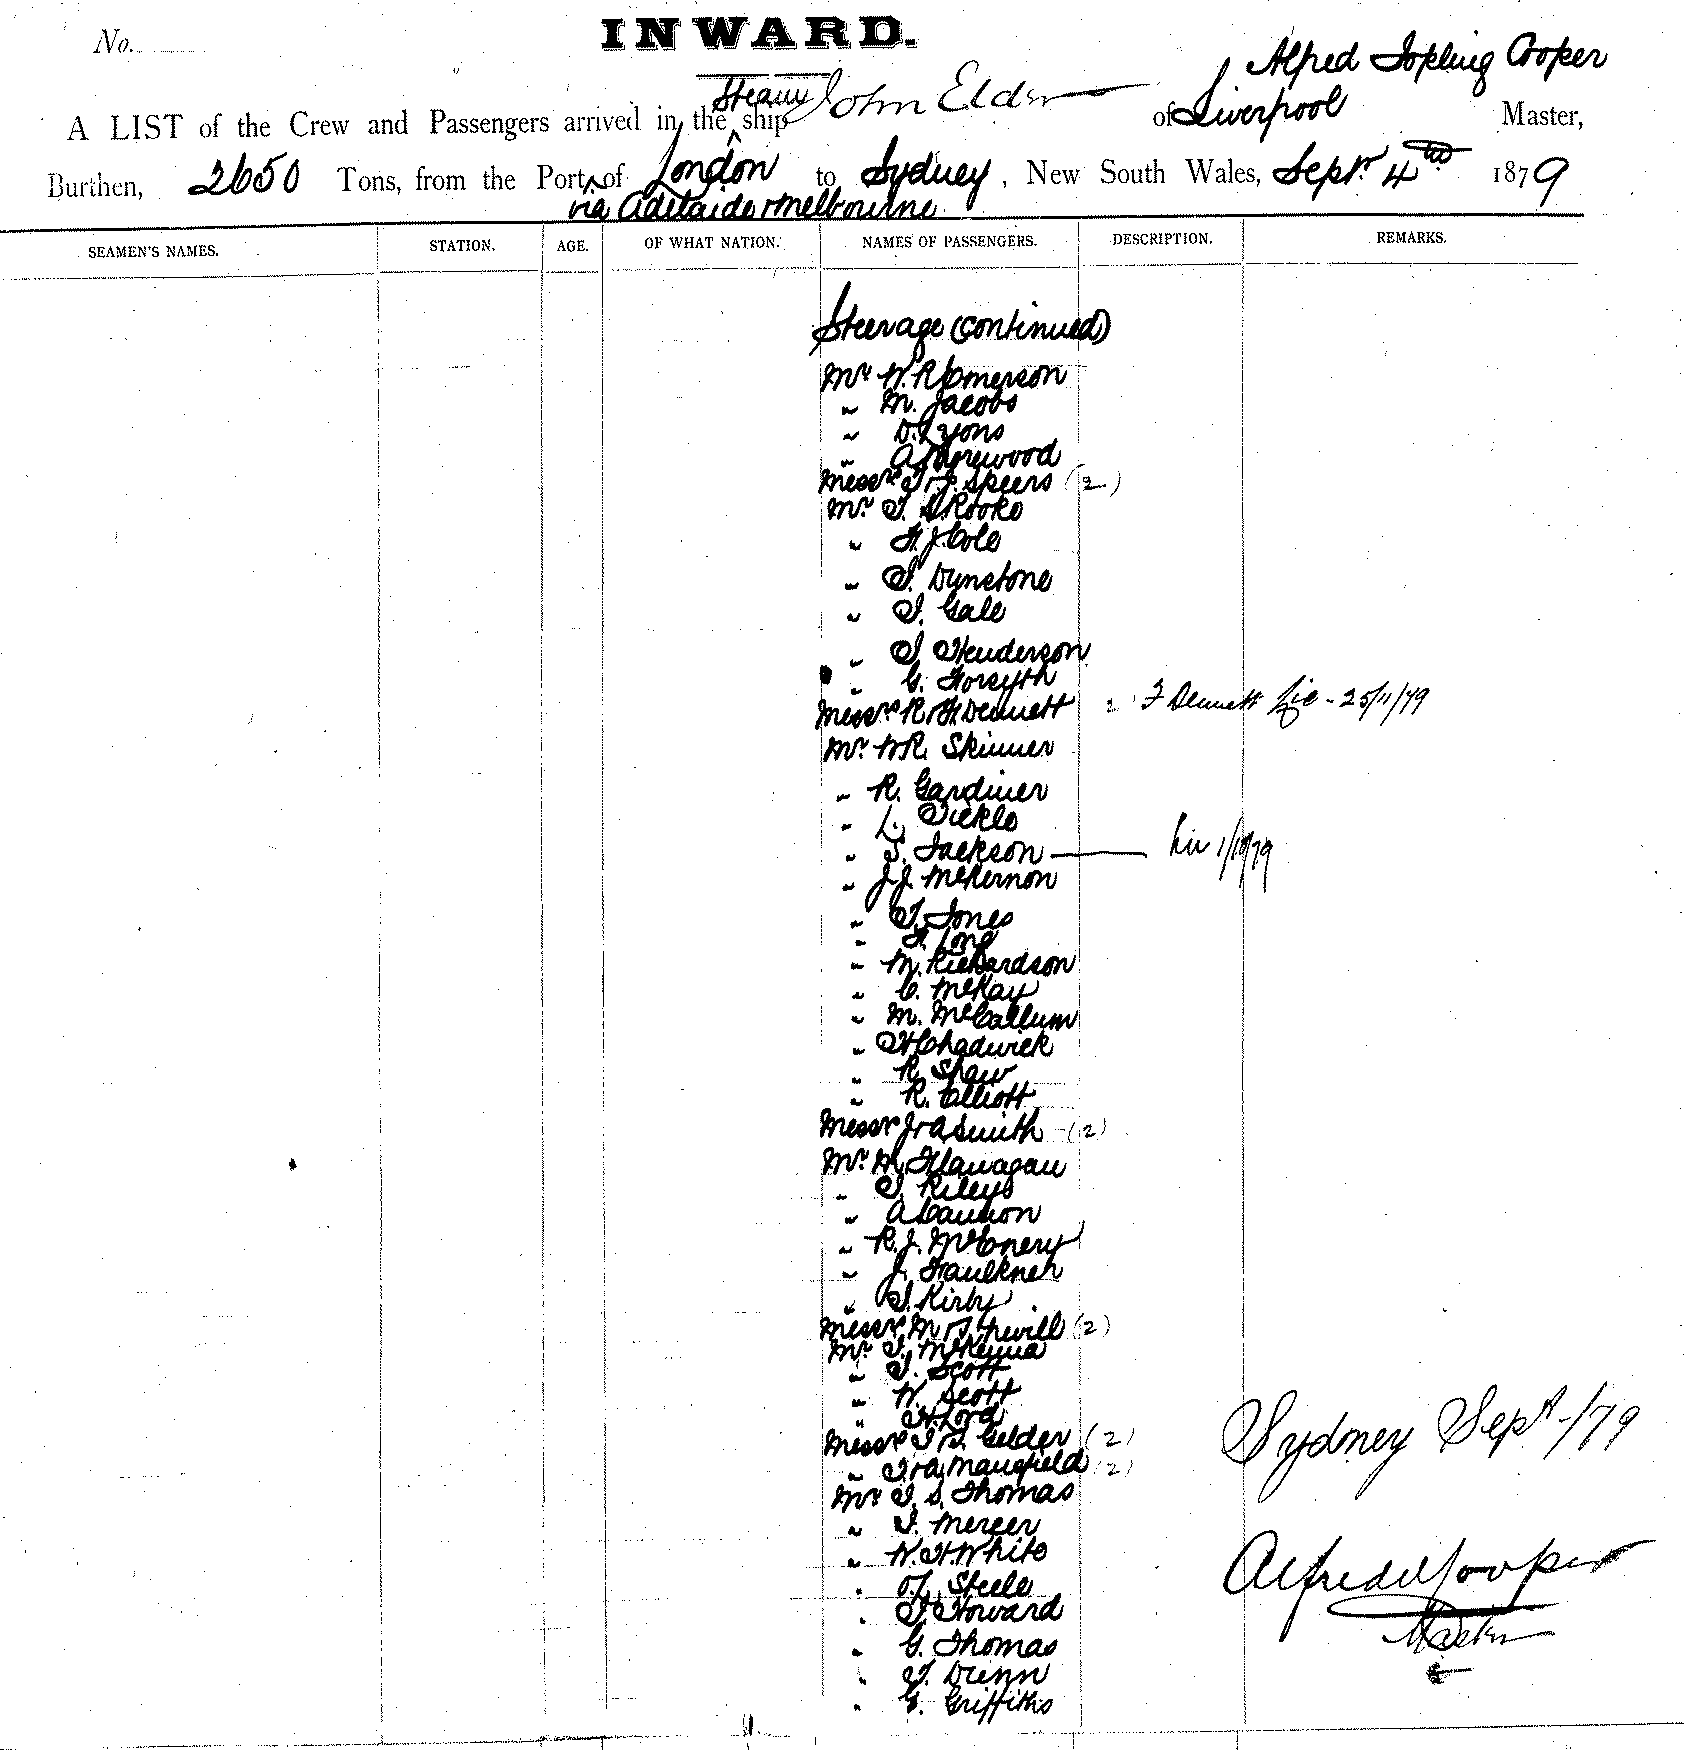 No.
INWARD.
Alfred Jopling Cooper
A LIST of the Crew and Passengers arrived in the Steam ship John Elder of Liverpool Master,
Burthen, 2650 Tons, from the Port of London to Sydney, New South Wales, Septr 4th 1879
via Adelaide & Melbourne
SEAMEN'S NAMES. STATION. AGE. OF WHAT NATION. NAMES OF PASSENGERS. DESCRIPTION. REMARKS.
Steerage (continued)
Mr W. R. Emerson
" M. Jacobs
" D. Lyons
" A.
Messrs T & J. Speers (2)
Mr T. Rooke
" F. J. Cole
" T. Dunstone
" T. Gale
" T Henderson
" G. Forsyth
Messrs R & F Dennett 2 F Dennett Lie - 25/11/79
Mr W R. Skinner
" R. Gardiner
" L. Tickle
" T. Jackson Liv 1/10/79
" J. J. McKernon
" T. Jones
" F. Long
" M. Richardson
" C. McKay
" M. McCallum
" H Chadwick
" R. Shaw
" R. Elliott
Messrs J & A Smith (2)
Mr M. Flanagan
" T. Riley
" A
" R. J. McEnery
" J. Faulkner
" T. Kirby
Messrs M & T (2)
Mr T. McKenna
" T. Scott
" W. Scott
" H Lord
Messrs T & J. Gelder (2)
" T & A. Mansfield (2)
Sydney Sept -/79
Mr T. S. Thomas
" T. Mercer
" W. H. White
Alfred J Cooper
" Steele
" T. Howard
Master
" G. Thomas
" T. Dunn
" G. Griffiths